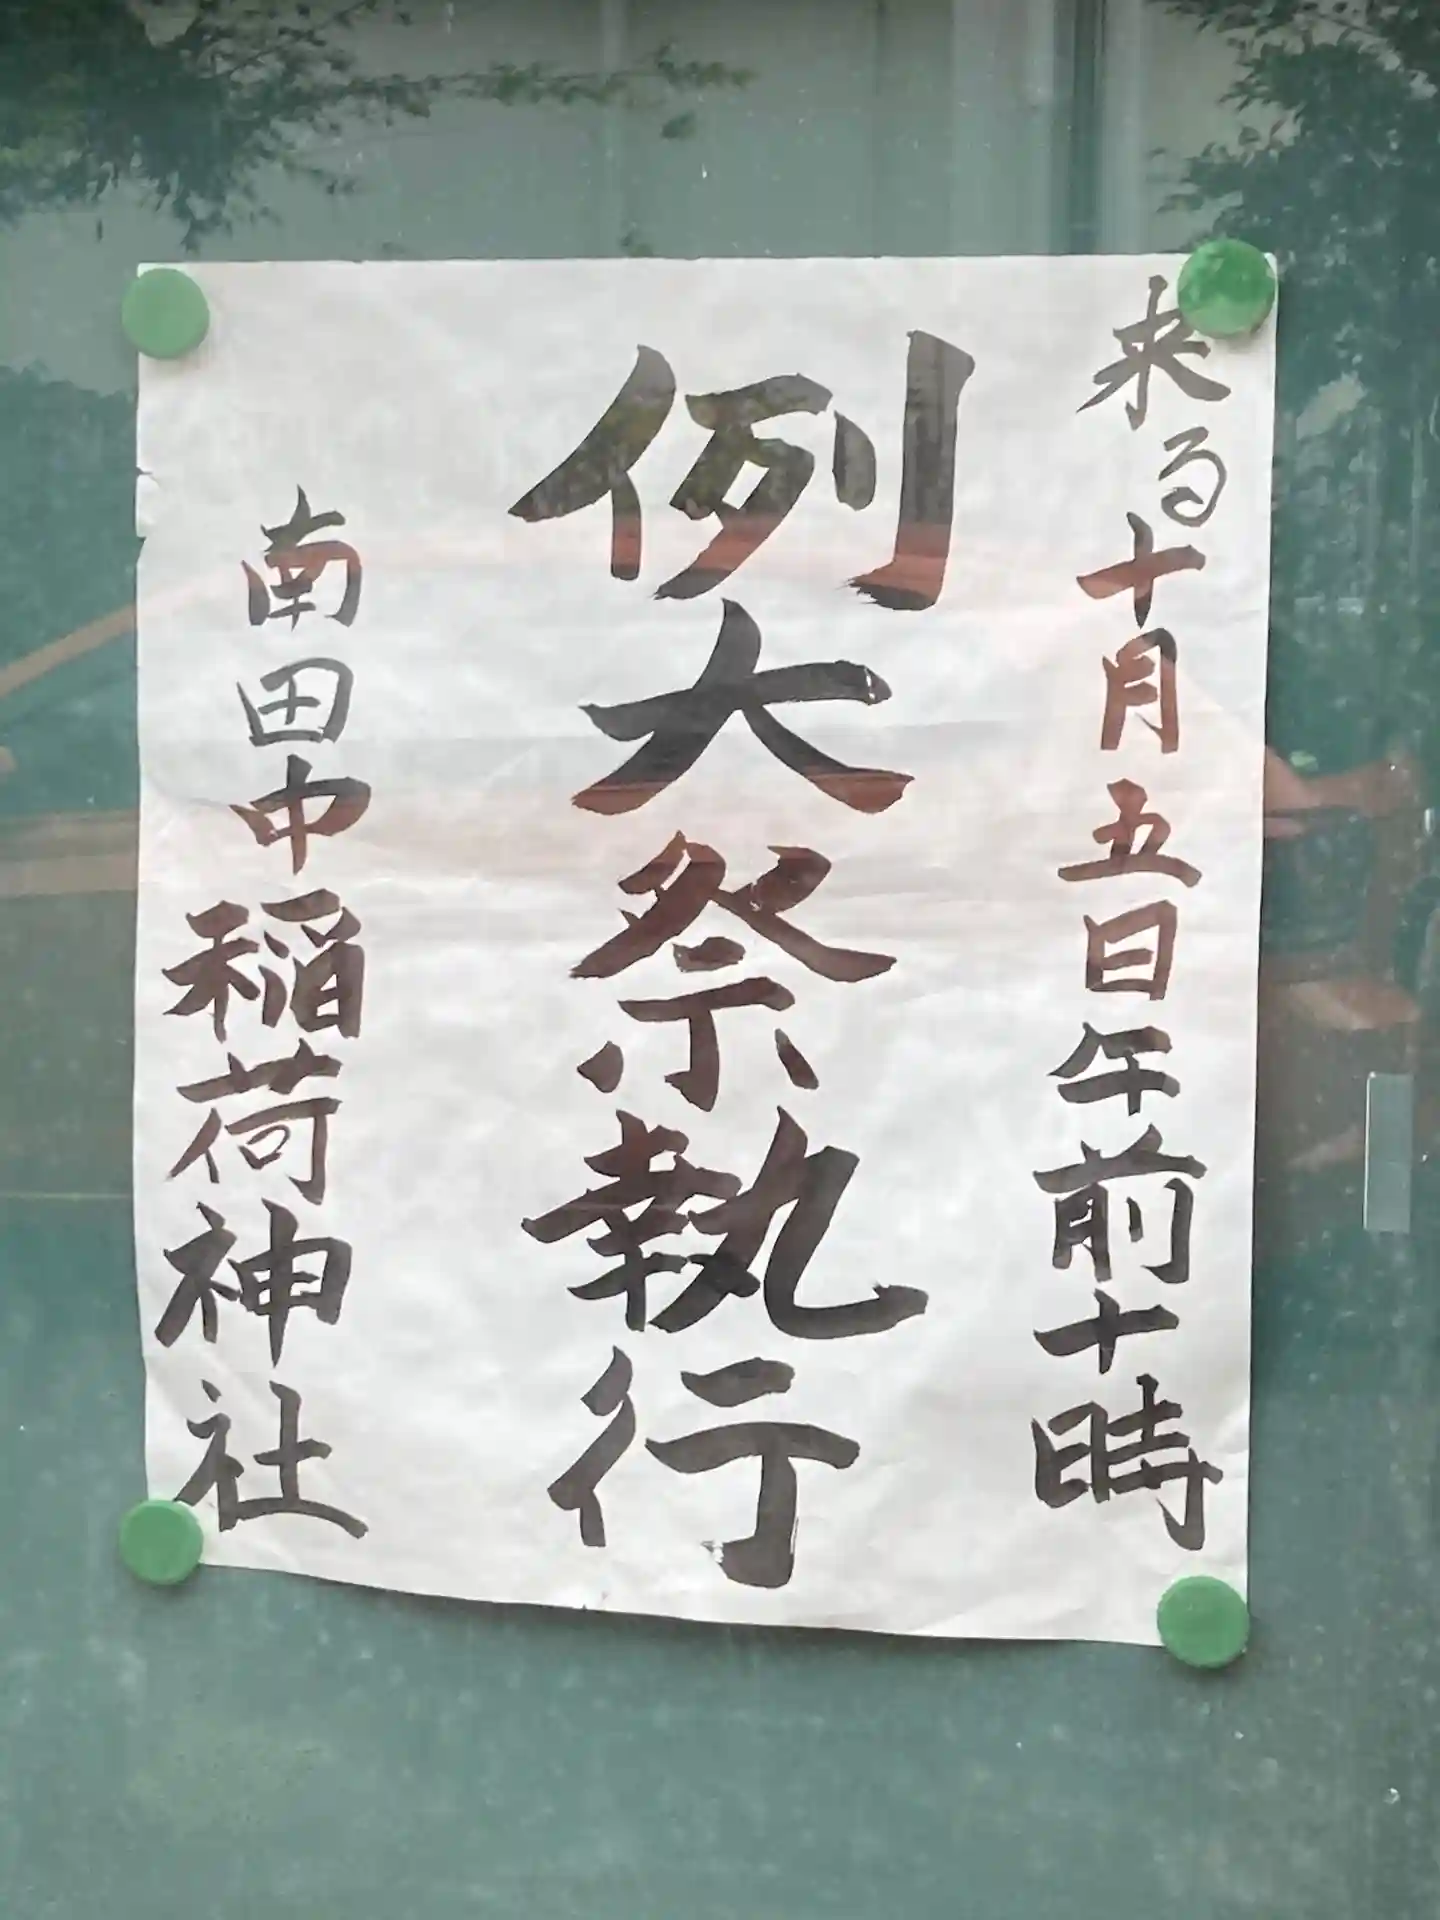 来る十月五日午前十時
例大祭執行
南田中稲荷神社